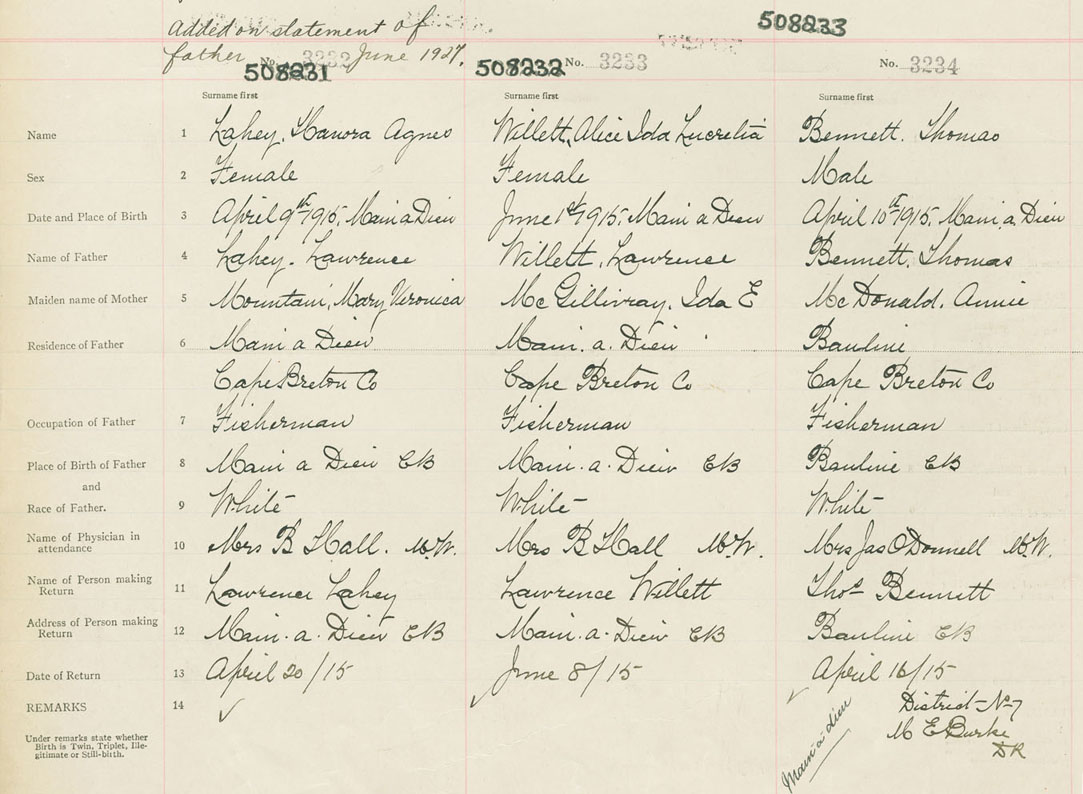 Added on statement of
father June 1927.
508233
508231 No. 3232
508232 No. 3233
No. 3234
Surname first Surname first Surname first
Name 1 Lahey, Hanora Agnes Willett, Alice Ida Lucretia Bennett. Thomas
Sex 2 Female Female Male
Date and Place of Birth 3 April 9th 1915, Main a Dieu June 1st 1915, Main a Dieu April 10th 1915, Main a Dieu
Name of Father 4 Lahey. Lawrence Willett, Lawrence Bennett, Thomas
Maiden name of Mother 5 Mountain, Mary Veronica McGillivray, Ida E McDonald. Annie
Residence of Father 6 Main a Dieu Main. a. Dieu Bauline
Cape Breton Co Cape Breton Co Cape Breton Co
Occupation of Father 7 Fisherman Fisherman Fisherman
Place of Birth of Father 8 Main a Dieu CB Main. a. Dieu CB Bauline CB
and
Race of Father. 9 White White White
Name of Physician in
attendance 10 Mrs B Hall. M.W. Mrs B Hall M.W. Mrs Jas O'Donnell M.W.
Name of Person making
Return 11 Lawrence Lahey Lawrence Willett Thos Bennett
Address of Person making
Return 12 Main. a. Dieu CB Main. a. Dieu CB Bauline CB
Date of Return 13 April 20/15 June 8/15 April 16/15
REMARKS 14 District No 7
M E Burke
DR
Main-a-dieu
Under remarks state whether
Birth is Twin, Triplet, Ille-
gitimate or Still-birth.